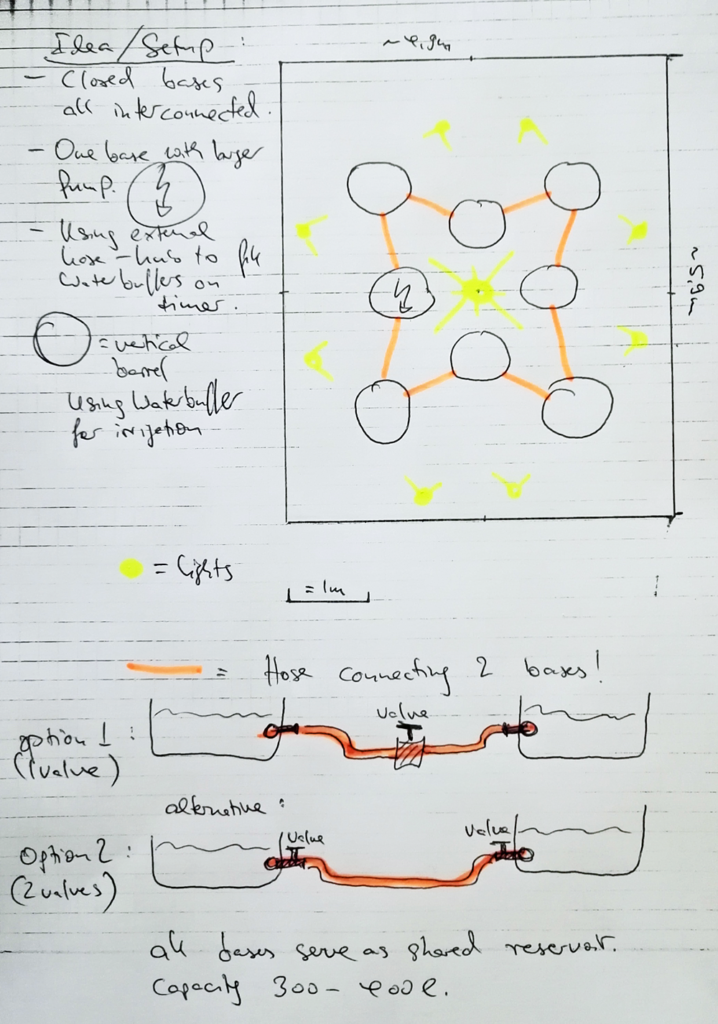 Idea/Setup :
- Closed bases
all interconnected.
- One base with larger
pump.
- Using external
hose-hub to fill
waterbuffers on
timer.
= vertical
barrel
Using Waterbuffer
for irrijation
~4,9m
~5,9m
= lights
= 1m
= Hose connecting 2 bases!
option 1 :
(1 valve)
Valve
alternative :
Option 2 :
(2 valves)
Valve
Valve
all bases serve as shared reservoir.
Capacity 300-400l.